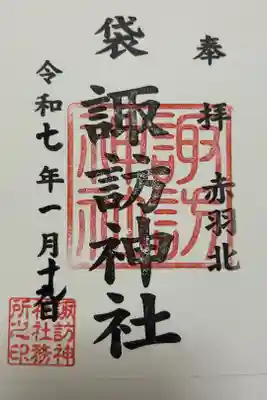 奉拝
赤羽北
袋
諏訪神社
令和七年一月十九日
諏訪
神社
諏訪神
社社務
所之印